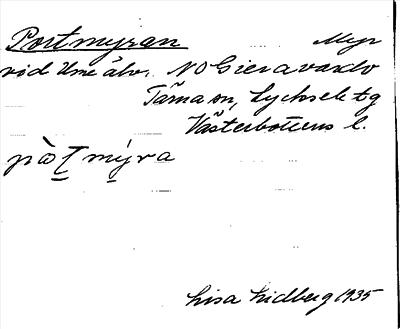 Portmyran Myr
vid Ume älv. NO Gieravardo
Tärna sn, Lycksele tg
Västerbottens l.
pò̀t mýra
Lisa Lidberg 1935